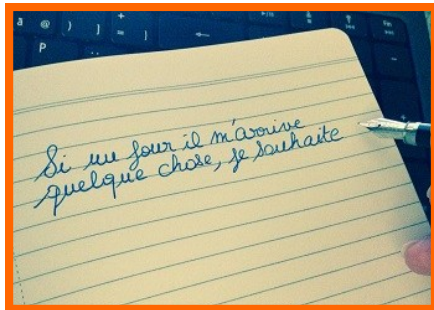 à @ ) ] + = }
P
Si un jour il m'arrive
quelque chose, je souhaite